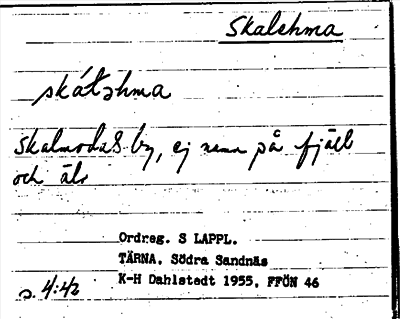 Skalehma
skáłəhma
Skalmodals by, ej namn på fjäll
och älv
Ordreg. S LAPPL.
TÄRNA. Södra Sandnäs
K-H Dahlstedt 1955. FFÖN 46
s. 4:42